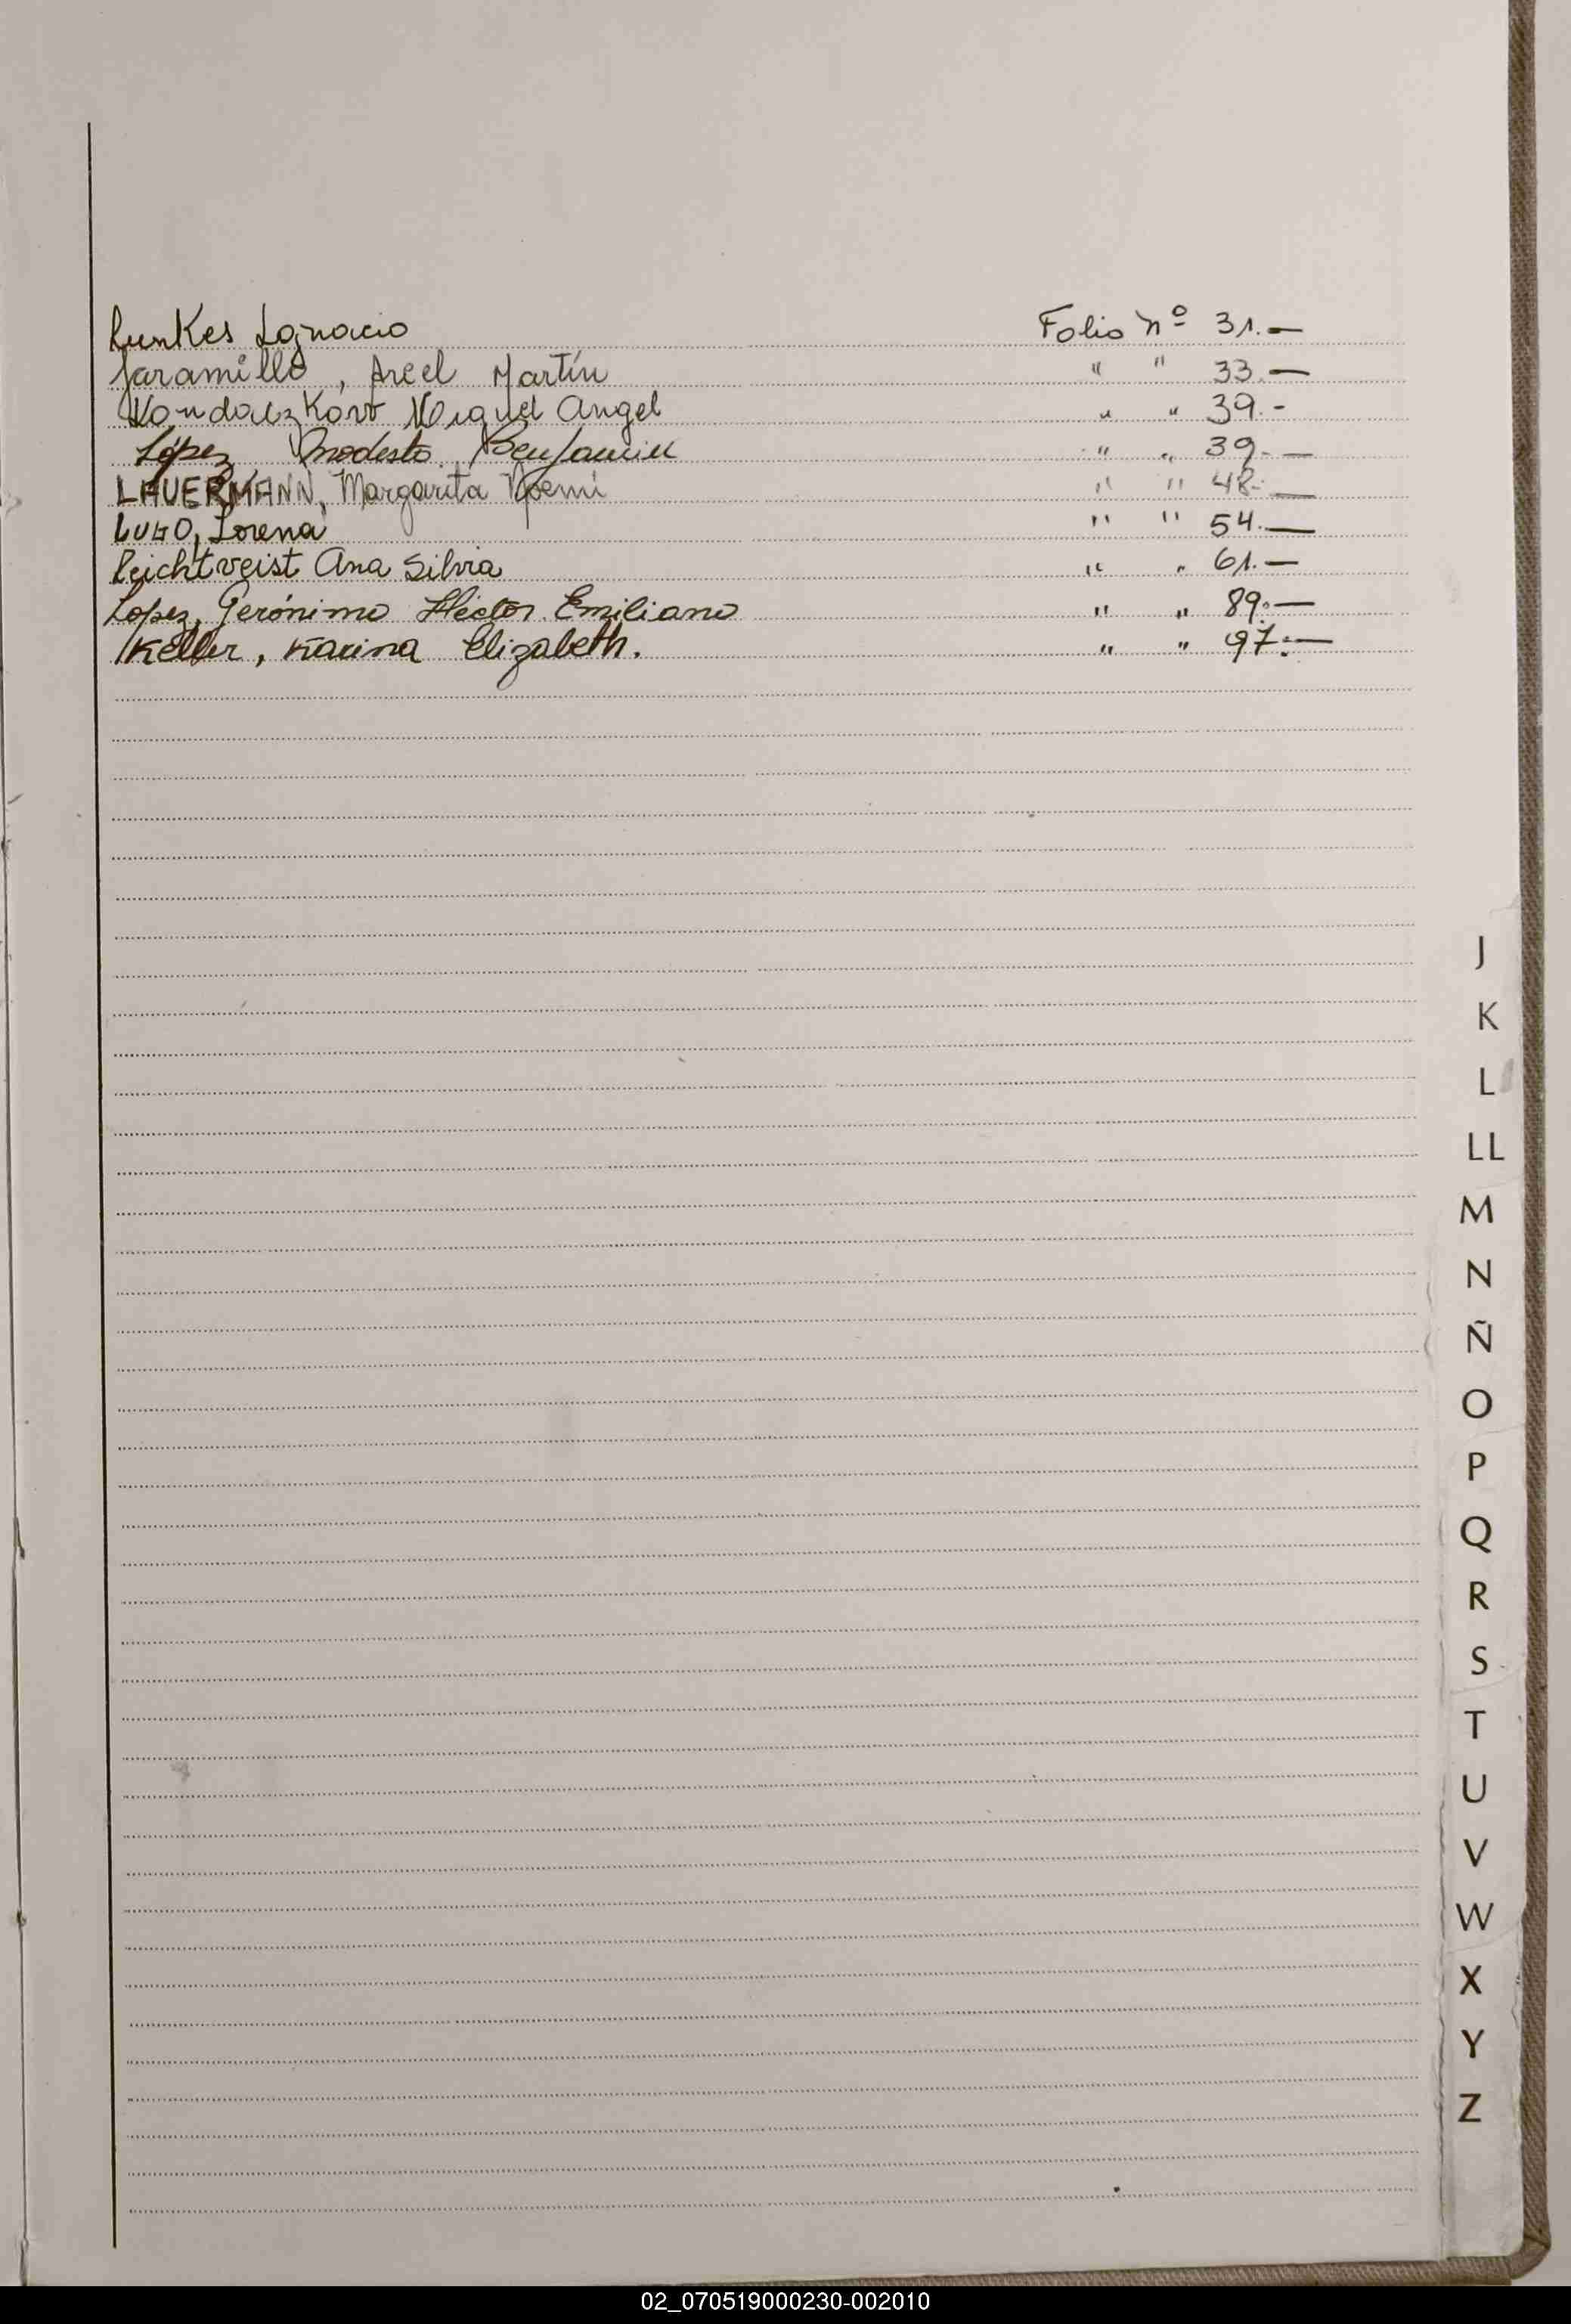 Lunkes Ignacio Folio nº 31.—
Jaramillo, Arcel Martín " " 33.—
Miguel Angel " " 39.-
López Modesto Benjamin " " 39.—
LAUERMANN, Margarita Noemi " " 48.—
LUGO, Lorena " " 54.—
Leichtveist Ana Silvia " " 61.—
Lopez, Gerónimo Héctor Emiliano " " 89.—
Keller, Karina Elizabeth. " " 97.—
J
K
L
LL
M
N
Ñ
O
P
Q
R
S
T
U
V
W
X
Y
Z
02_070519000230-002010